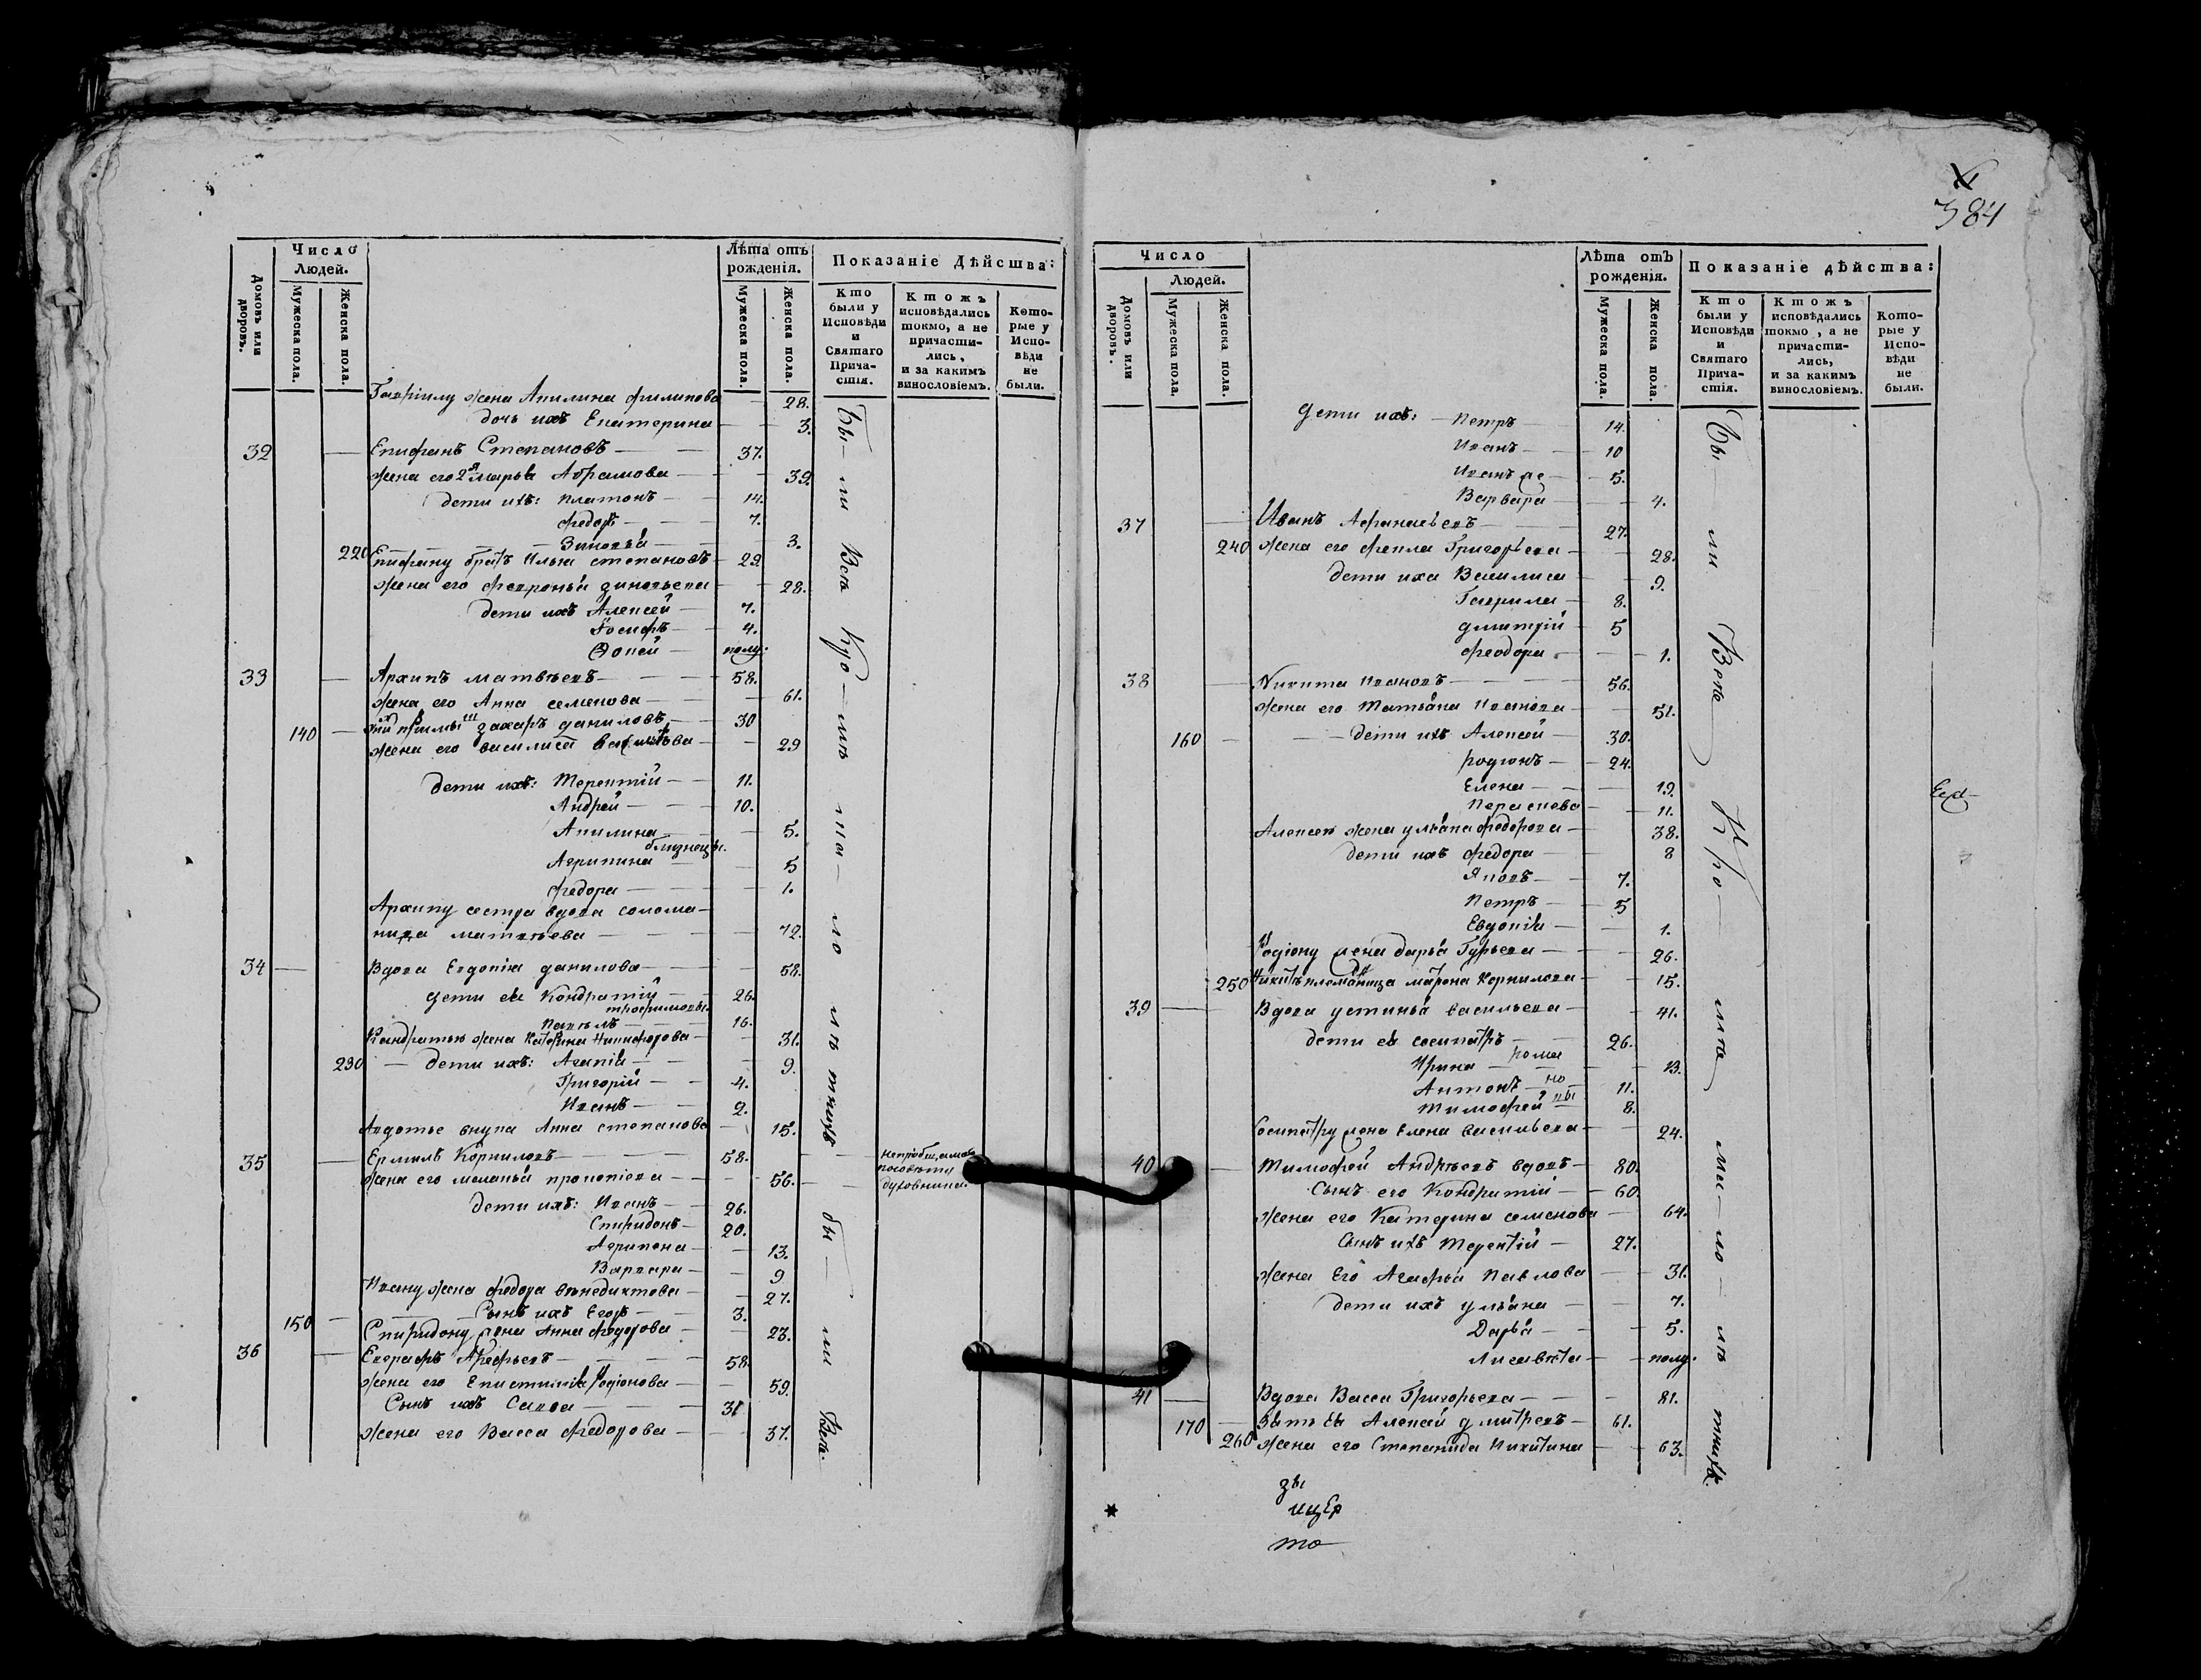 384
Число
Людей.
Лѣта отъ
рожденія.
Показаніе Дѣйства:
Домовъ или
дворовъ.
Мужеска пола.
Женска пола.
Мужеска пола.
Женска пола.
Кто
были у
Исповѣди
и
Святаго
Прича-
стія.
Ктожъ
исповѣдались
токмо, а не
причасти-
лись,
и за какимъ
винословіемъ.
Кото-
рые у
Испо-
вѣди
не
были.
Гаврiилу жена Акилина филипова — 28.
дочь ихъ Екатерина — 3.
32 Епифанъ Степановъ — 37.
жена его 2я марья Абрамова — 39.
дети ихъ: платонъ — 14.
федоръ — 7.
Зиновья — 3.
220 Епифану братъ Илья степановъ — 29
жена его феврониья зиновьева — 28.
дети ихъ Алексей — 7.
Іосифъ — 4.
Фокей — полу.
33 Архипъ матвѣевъ — 58.
жена его Анна семенова — 61.
140 захаръ даниловъ — 30
жена его василиса — 29
дети ихъ: Терентій — 11.
Андрей — 10.
Акилина — 5.
близнецы.
Агрипина — 5
федора — 1.
Архипу сестра вдова солома-
нида матвѣева — 72.
34 Вдова Евдокия данилова — 58.
дети ея Кондратій — 26.
трофимовы.
Павелъ — 16.
Кандратью жена Катерина Никифорова — 31.
230 дети ихъ: Агапія — 9.
Григорій — 4.
Иванъ — 2.
Авдотье внука Анна степанова — 15.
35 Ермилъ Корниловъ — 58.
жена его маланья прокопіева — 56.
духовника.
дети ихъ: Иванъ — 26.
Спиридонъ — 20.
Агрипена — 13.
Варвара — 9
Ивану жена федора венедиктова — 27.
150 Сынъ ихъ Егоръ — 3.
Спиридону жена Анна федорова — 23.
36 Евграфъ Арефьевъ — 58.
жена его Епистимія Родіонова — 59.
Сынъ ихъ Савва — 31
жена его Васса федорова — 37.
Бы — ли Всѣ Кро — мѣ ма — ло — лѣтныхъ
бы — ли Всѣ.
Число
Людей.
Лѣта отъ
рожденія.
Показаніе дѣйства:
Домовъ или
дворовъ.
Мужеска пола.
Женска пола.
Мужеска пола.
Женска пола.
Кто
были у
Исповѣди
и
Святаго
Прича-
стія.
Ктожъ
исповѣдались
токмо, а не
причасти-
лись,
и за какимъ
винословіемъ.
Кото-
рые у
Испо-
вѣди
не
были.
дети ихъ: Петръ — 14.
Иванъ — 10
Иванъ же — 5.
Варвара — 4.
37 Иванъ Афанасьевъ — 27.
240 жена его фекла Григорьева — 28.
дети ихъ Василиса — 9.
Гаврила — 8.
дмитрій — 5
феодора — 1.
38 Никита Ивановъ — 56.
жена его Татьяна Иванова — 51.
160 дети ихъ Алексей — 30.
родіонъ — 24.
Елена — 19.
Парасковья — 11.
Алексею жена ульяна федорова — 38.
дети ихъ федора — 8
Яковъ — 7.
Петръ — 5
Евдокія — 1.
Родіону жена дарья Гурьева — 26.
250 Никитѣ племяница матрона Корнилова — 15.
39 Вдова устинья васильева — 41.
дети ея сосипатръ — 26.
Ирина — 13.
рома
Антонъ — 11.
но
Тимофей — 8.
вы
Сосипатру жена Елена васильева — 24.
40 Тимофей Андреевъ вдовъ — 80.
Сынъ его Кондратій — 60.
жена его Катерина семенова — 64.
Сынъ ихъ Терентій — 27.
жена Его Агафья Павлова — 31.
дети ихъ ульяна — 7.
Дарья — 5.
Лисавѣта — полу.
41 Вдова Васса Григорьева — 81.
170 Зять Ея Алексей дмитревъ — 61.
260 жена его Степанида Никитина — 63.
Бы — ли Всѣ Кро — мѣ ма — ло — лѣтныхъ.